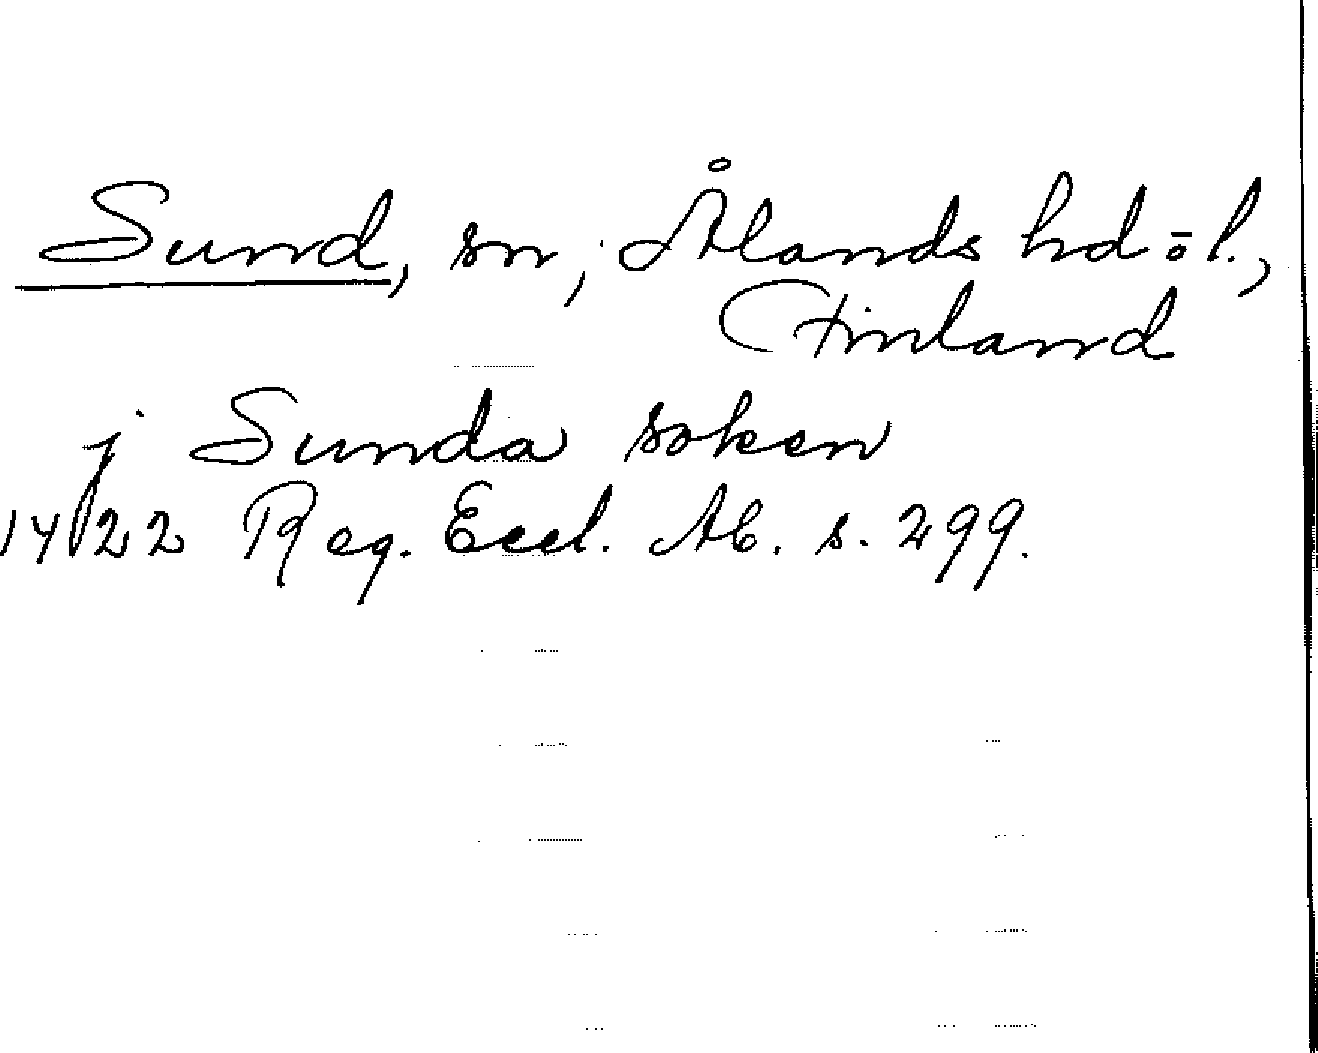 Sund, sn, Ålands hd ō l.,
Finland
j Sunda soken
1422 Reg. Eccl. Ab. s. 299.